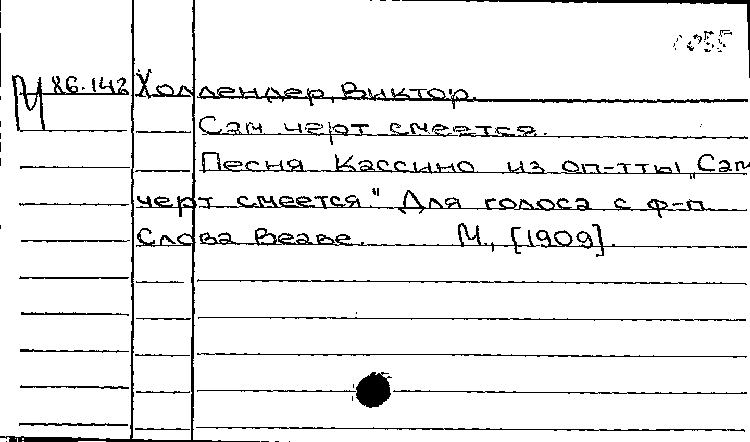 М 86.142 Холлендер, Виктор.
Сам черт смеется.
Песня Кассино из оп-тты „Сам
черт смеется" Для голоса с ф-п.
Слова Веаве. М., [1909].